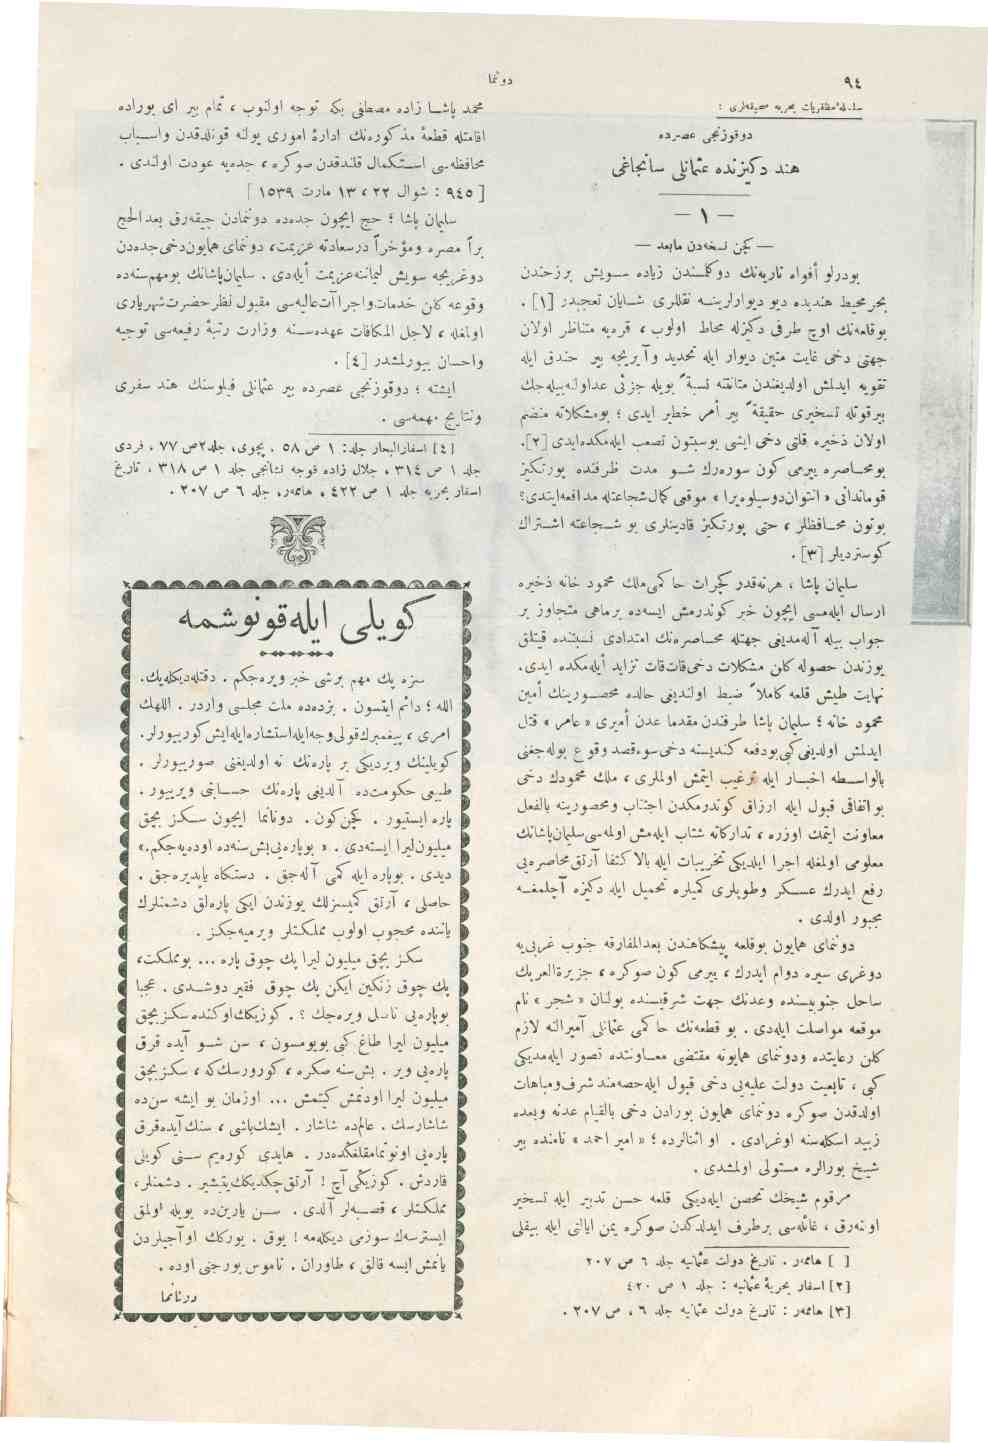 ٩٤
دوننما
سلسلهٔ مظفریات بحریه صحیفه‌لری :
دوقوزنجی عصرده
هند دکیزنده عثمانلی سانجاغی
— ١ —
— کچن نسخه‌دن مابعد —
بودرلو أفواه ناریه‌نك دوکلسندن زیاده ســویش برزخندن
بحر محیط هندیده دیو دیوارلرینــه نقللری شــایان تعجبدر [١] .
بوقلعه‌نك اوچ طرفی دکیزله محاط اولوب ، قره‌یه متناظر اولان
جهتی دخی غایت متین دیوار ایله تحدید و آیریجه بیر خندق ایله
تقویه ایدلمش اولدیغندن متانتنه نسبةً بویله جزئی عداولنه‌بیله‌جك
بیرقوتله تسخیری حقیقةً بیر أمر خطیر ایدی ؛ بومشکلاته منضم
اولان ذخیره قلتی دخی ایشی بوسبتون تصعب ایله‌مکده‌ایدی [٢].
بومحــاصره ییرمی کون سوره‌رك شــو مدت ظرفنده پورتکیز
قوماندانی « انتوان‌دوسیلوه‌یرا » موقعی کمال شجاعتله مدافعه‌ایتدی؟
بوتون محــافظلر ، حتی پورتکیز قادینلری بو شــجاعته اشــتراك
کوستردیلر [٣] .
سلیمان پاشا ، هرنه‌قدر کجرات حاکمی ملك محمود خانه ذخیره
ارسال ایله‌مسی ایچون خبر کوندرمش ایسه‌ده برماهی متجاوز بر
جواب بیله آله‌مدیغی جهتله محــاصره‌نك امتدادی نسبتنده قیتلق
یوزندن حصوله کلن مشکلات دخی قات‌قات تزاید أیله‌مکده ایدی.
نهایت طیش قلعه کاملاً ضبط اولندیغی حالده محصــورینك أمین
محمود خانه ؛ سلیمان پاشا طرفندن مقدما عدن أمیری « عامر » قتل
ایدلمش اولدیغی‌کبی‌بودفعه کندیسنه دخی‌سوءقصد وقوع بوله‌جغنی
بالواســطه اخبــار ایله ترغیب ایتمش اولملری ، ملك محمودك دخی
بو اتفاقی قبول ایله ارزاق کوندرمکدن اجتناب و محصورینه بالفعل
معاونت ایتمك اوزره ، تدارکاته شتاب ایله‌مش اولمه‌سی‌سلیمان‌پاشانك
معلومی اولمغله اجرا ایلدیکی تخریبات ایله بالاکتفا آرتق محاصره‌یی
رفع ایدرك عســکر وطوپلری کمیلره تحمیل ایله دکیزه آچلمغــه
مجبور اولدی .
دوننمای همایون بوقلعه پیشکاهندن بعدالمفارقه جنوب غربی‌یه
دوغری سیره دوام ایدرك ، ییرمی کون صوکره ، جزیرةالعربك
ساحل جنوبیسنده وعدنك جهت شرقیسنده بولنان « شجر » نام
موقعه مواصلت ایله‌دی . بو قطعه‌نك حاکمی عثمانلی آمیرالنه لازم
کلن رعایتده ودوننمای همایونه مقتضی معــاونتده قصور ایله‌مدیکی
کبی ، تابعیت دولت علیه‌یی دخی قبول ایله حصه‌مند شرف‌ومباهات
اولدقدن صوکره دوننمای همایون بورادن دخی بالقیام عدنه وبعده
زبید اسکله‌سنه اوغرادی . او اثنالرده ؛ « امیر احمد » نامنده بیر
شیخ بورالره مستولی اولمشدی .
مرقوم شیخك تحصن ایله‌دیکی قلعه حسن تدبیر ایله تسخیر
اولنه‌رق ، غائله‌سی برطرف ایدلدکدن صوکره یمن ایالتی ایله بیقلی
[ ] هاممه‌ر . تاریخ دولت عثمانیه جلد ٦ ص ٢٠٧
[٢] اسفار بحریهٔ عثمانیه : جلد ١ ص ٤٢٠
[٣] هاممه‌ر : تاریخ دولت عثمانیه جلد ٦ ، ص ٢٠٧ .
محمد پاشــا زاده مصطفی بکه توجه اولنوب ، تمام بیر ای بوراده
اقامتله قطعهٔ مذکوره‌نك ادارهٔ اموری یولنه قونلدقدن واســباب
محافظه‌سی اســتکمال قلندقدن صوکره ، جده‌یه عودت اولندی .
[ ٩٤٥ : شوال ٢٢ ، ١٣ مارت ١٥٣٩ ]
سلیمان پاشا ؛ حج ایچون جده‌ده دوننمادن چیقه‌رق بعد الحج
براً مصره ومؤخراً درسعادته عزیمت ، دوننمای همایون‌دخی‌جده‌دن
دوغریجه سویش لیماننه‌عزیمت أیله‌دی . سلیمان‌پاشانك بومهم‌سنه‌ده
وقوعه کلن خدمات‌واجراآت‌عالیه‌سی مقبول نظر حضرت‌شهریاری
اولمغله ، لاجل المکافات عهده‌ســنه وزارت رتبهٔ رفیعه‌سی توجیه
واحسان بیورلمشدر [٤] .
ایشته ؛ دوقوزنجی عصرده بیر عثمانلی فیلوسنك هند سفری
ونتایج مهمه‌سی .
[٤] اسفارالبحار جلد : ١ ص ٥٨ ، پچوی، جلد٢ص ٧٧ ، فردی
جلد ١ ص ٣١٤ ، جلال زاده قوجه نشانجی جلد ١ ص ٣١٨ ، تاریخ
اسفار بحریه جلد ١ ص ٤٢٢ ، هاممه‌ر، جلد ٦ ص ٢٠٧ .
کویلی ایله‌قونوشمه
سزه پك مهم برشی خبر ویره‌جکم . دقتله‌دیکله‌یك.
الله ؛ دائم ایتسون . بزده‌ده ملت مجلسی واردر . اللهك
امری ، پیغمبرك‌قولی‌وجه‌ایله‌استشاره‌ایله‌ایش‌کوریبورلر.
کویلینك ویردیکی بر پاره‌نك نه اولدیغنی صوریبورلر .
طبیعی حکومت‌ده آلدیغی پاره‌نك حســابنی ویریبور .
پاره ایستیور . کچن‌کون . دوننما ایچون ســکز بچق
میلیون‌لیرا ایسته‌دی . « بوپاره‌یی‌بش‌سنه‌ده اوده‌یه‌جکم.»
دیدی . بوپاره ایله کمی آله‌جق . دستکاه یاپدیره‌جق .
حاصلی ، آرتق کمیسزلك یوزندن ایکی پاره‌لق دشمنلرك
یاننده محجوب اولوب مملکتلر ویرمیه‌جکز .
سکز بچق میلیون لیرا پك چوق پاره ... بومملکت،
پك چوق زنکین ایکن پك چوق فقیر دوشــدی . عجبا
بوپاره‌یی ناســل ویره‌جك ؟ . کوزیکك‌اوکنده سکزبچق
میلیون لیرا طاغ کبی بویومسون ، سن شــو آیده قرق
پاره‌یی ویر . بش‌سنه صکره ، کورورسك‌که ، سکزبچق
میلیون لیرا اودنمش کیتمش ... اوزمان بو ایشه سن‌ده
شاشارسك . عالم‌ده شاشار . ایشك‌باشی ، سنك آیده‌قرق
پاره‌یی اونوتمامقلغکده‌در . هایدی کوره‌یم ســنی کویلی
قارداش . کوزیکی آچ ! آرتق‌چکدیکك‌یتیشیر . دشمنلر،
مملکتلر ، قصــبه‌لر آلدی . ســن یارین‌ده بویله اولمق
ایسترسه‌ك سوزمی دیکله‌مه ! یوق . یورکك اوآجیلردن
یانمش ایسه قالق ، طاوران . ناموس بورجنی اوده .
دوننما